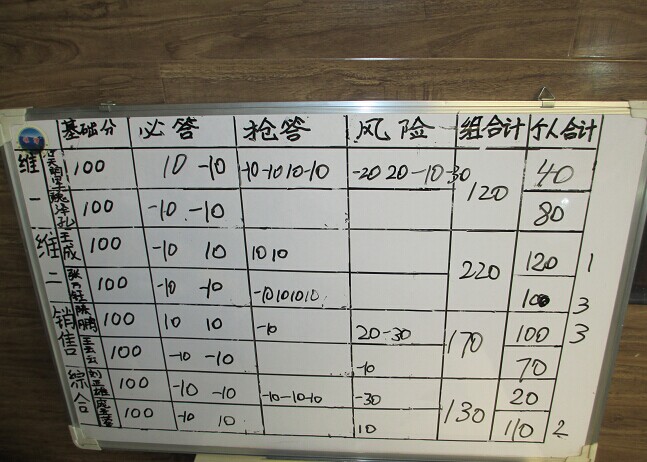 基础分 必答 抢答 风险 组合计 个人合计
维一 100 10 -10 -10-10 10-10 -20 20 -10 -30 120 40
100 -10 -10 80
维二 王成 100 -10 10 10 10 220 120 1
100 -10 -10 -10 10 10 10 100 3
销售 陈鹏 100 10 10 -10 20 -30 170 100 3
100 -10 -10 -10 70
综合 100 -10 -10 -10-10-10 -30 130 20
100 -10 10 10 110 2